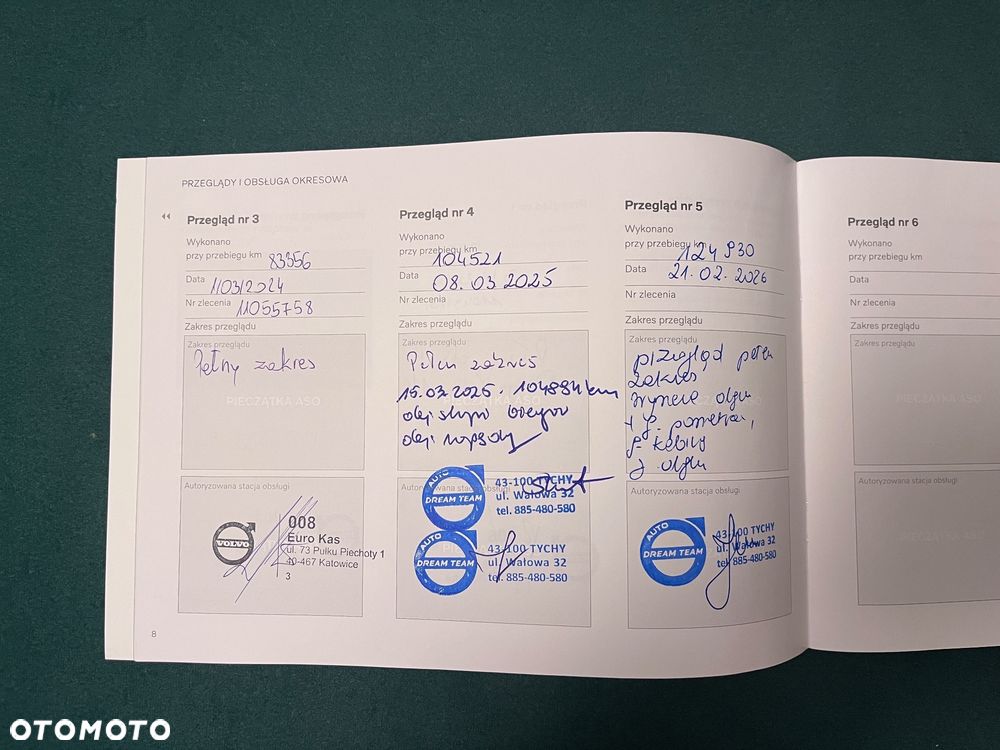 PRZEGLĄDY I OBSŁUGA OKRESOWA
Przegląd nr 3
Wykonano
przy przebiegu km 83356
Data 1103/2024
Nr zlecenia 11055758
Zakres przeglądu
Zakres przeglądu
Pełny zakres
PIECZĄTKA ASO
Autoryzowana stacja obsługi
VOLVO
008
Euro Kas
ul. 73 Pułku Piechoty 1
40-467 Katowice
3
Przegląd nr 4
Wykonano
przy przebiegu km 104521
Data 08.03.2025
Nr zlecenia
Zakres przeglądu
Zakres przeglądu
Pełen zakres
15.03.2025. 104884 km
olej skrzyni biegów
olej napędy
Autoryzowana stacja obsługi
AUTO
DREAM TEAM
43-100 TYCHY
ul. Wałowa 32
tel. 885-480-580
AUTO
DREAM TEAM
43-100 TYCHY
ul. Wałowa 32
tel. 885-480-580
Przegląd nr 5
Wykonano
przy przebiegu km 124930
Data 21.02.2026
Nr zlecenia
Zakres przeglądu
Zakres przeglądu
przegląd pełen
zakres
wymiana oleju
+ f. powietrza,
f. kabiny
f. oleju
Autoryzowana stacja obsługi
AUTO
DREAM TEAM
43-100 TYCHY
ul. Wałowa 32
tel. 885-480-580
Przegląd nr 6
Wykonano
przy przebiegu km
Data
Nr zlecenia
Zakres przeglądu
Zakres przeglądu
PIECZĄTKA ASO
Autoryzowana stacja obsługi
8
OTOMOTO